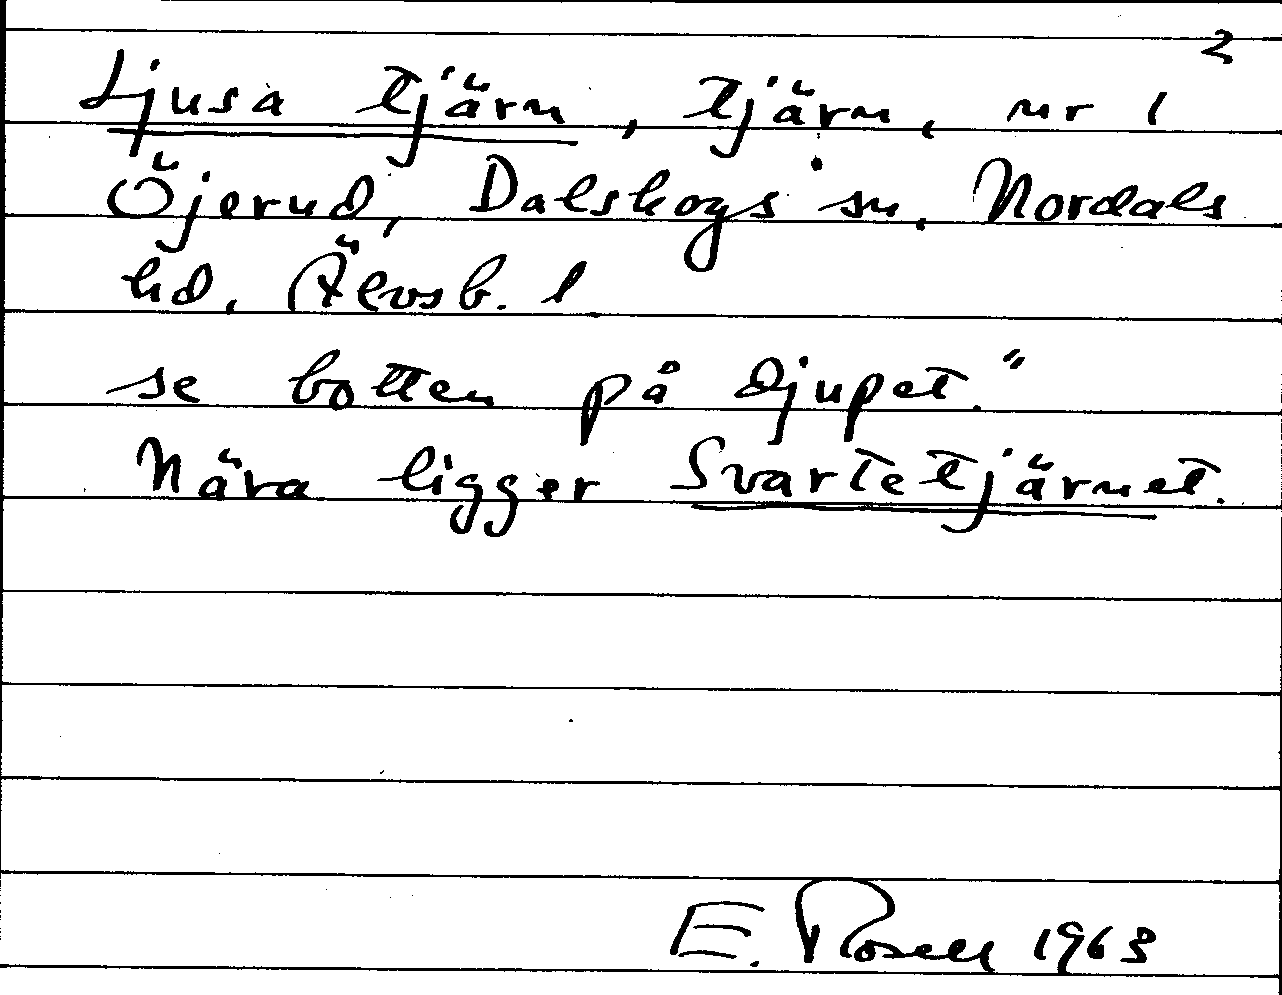 2
Ljusa tjärn, tjärn, nr 1
Öjerud, Dalskogs sn, Nordals
hd, Älvsb. l
se botten på djupet."
Nära ligger Svartetjärnet.
E. Rosell 1963